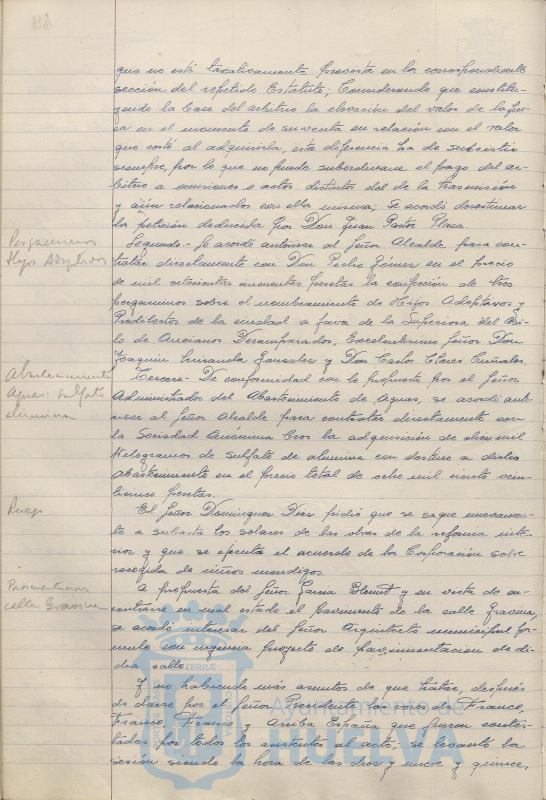 que no está taxativamente prevista en los correspondiente
sección del repetido Estatuto; Considerando que constitu-
yendo la base del arbitrio la elevación del valor de la fin-
ca en el momento de su venta en relación con el valor
que costó al adquirirla, esta diferencia ha de subsistir
siempre, por lo que no puede subordinarse el pago del ar-
bitrio a omisiones o actos distintos del de la trasmision
y aún relacionados con ella misma; se acordó desestimar
la petición deducida por Don Juan Pastor Plaza.
Pergaminos
Hijos Adoptivos
Segundo.- Se acordó autorizar al Señor Alcalde para con-
tratar directamente con Don Pedro Gómez en el precio
de mil ochocientas cincuenta pesetas la confección de tres
pergaminos sobre el nombramiento de Hijos Adoptivos y
Predilectos de la ciudad a favor de la Superiora del Asi-
lo de Ancianos Desamparados, Excelentísimo Señor Don
Joaquin Miranda Gonzalez y Don Carlos
Abastecimiento
Aguas: sulfato
alumina
Tercero.- De conformidad con lo propuesto por el Señor
Administrador del Abastecimiento de Aguas, se acordó auto-
rizar al Señor Alcalde para contratar directamente con
la Sociedad Anónima Cros la adquisición de diez mil
Kilogramos de sulfato de alumina con destino a dicho
abastecimiento en el precio total de ocho mil ciento vein-
ticinco pesetas.
Ruego
El Señor Dominguez Diaz pidió que se saque nuevamen-
te a subasta los solares de las obras de la reforma inte-
rior y que se ejecute el acuerdo de la Corporación sobre
recogida de niños mendigos.
Pavimentacion
calle Gravina
A propuesta del Señor Garcia y en vista de en-
contrarse en mal estado el pavimento de la calle Gravina,
se acordó interesar del Señor Arquitecto municipal for-
mule con urgencia proyecto de pavimentacion de di-
cha calle.
Y no habiendo más asuntos de que tratar, después
de darse por el Señor Presidente las voces de Franco,
Franco, Franco y Arriba España que fueron contes-
tadas por todos los asistentes al acto, se levantó la
sesión siendo la hora de las diez y nueve y quince,
Ayuntamiento de
HUELVA